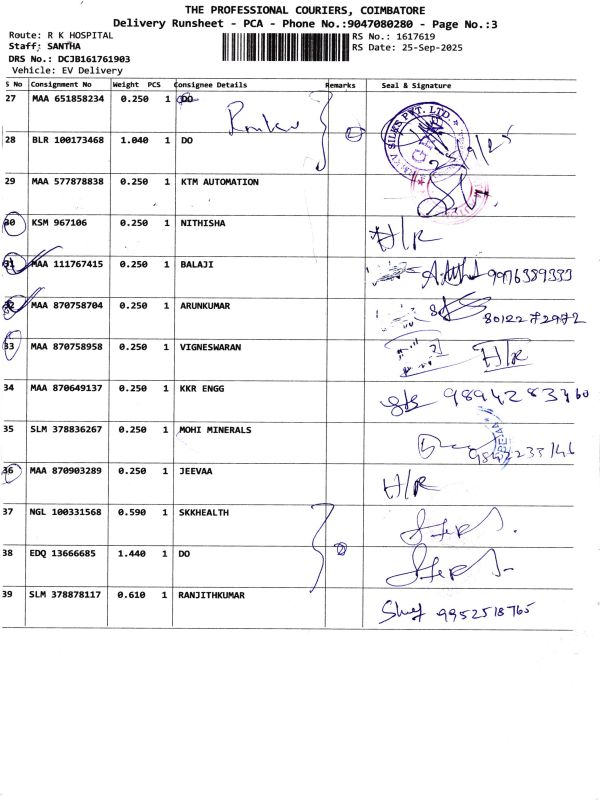 THE PROFESSIONAL COURIERS, COIMBATORE
Delivery Runsheet - PCA - Phone No.:9047080280 - Page No.:3
Route: R K HOSPITAL
RS No.: 1617619
Staff: SANTHA
RS Date: 25-Sep-2025
DRS No.: DCJB161761903
Vehicle: EV Delivery
S No Consignment No Weight PCS Consignee Details Remarks Seal & Signature
27 MAA 651858234 0.250 1 DO
28 BLR 100173468 1.040 1 DO
29 MAA 577878838 0.250 1 KTM AUTOMATION
30 KSM 967106 0.250 1 NITHISHA H/R
31 MAA 111767415 0.250 1 BALAJI 9976389333
32 MAA 870758704 0.250 1 ARUNKUMAR 8012272972
33 MAA 870758958 0.250 1 VIGNESWARAN H/R
34 MAA 870649137 0.250 1 KKR ENGG
35 SLM 378836267 0.250 1 MOHI MINERALS
36 MAA 870903289 0.250 1 JEEVAA H/R
37 NGL 100331568 0.590 1 SKKHEALTH
38 EDQ 13666685 1.440 1 DO
39 SLM 378878117 0.610 1 RANJITHKUMAR 9952518765